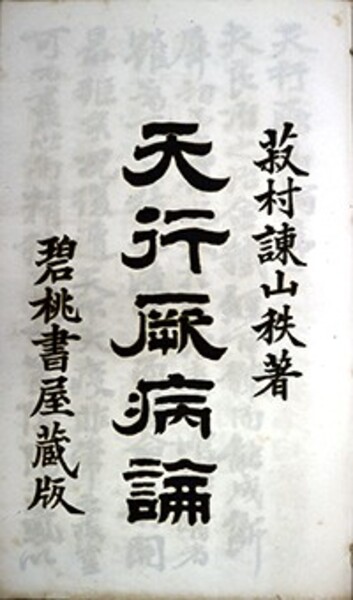 菽村諌山秩著
天行厥病論
碧桃書屋蔵版